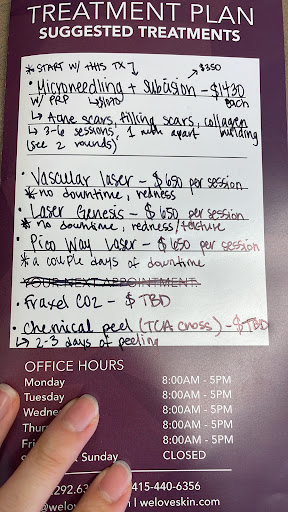 TREATMENT PLAN
SUGGESTED TREATMENTS
* START W/ THIS TX ↓ → $350
• Microneedling + Subcision - $1430
W/ PRP each
↳ Acne scars, filling scars, collagen
↳ 3-6 sessions, 1 mth apart building
(see 2 rounds)
• Vascular laser - $650 per session
* no downtime, redness
• Laser Genesis - $650 per session
* no downtime, redness/texture
• Pico Way Laser - $650 per session
* a couple days of downtime
YOUR NEXT APPOINTMENT
• Fraxel CO2 - $TBD
• Chemical peel (TCA Cross) - $TBD
↳ 2-3 days of peeling
OFFICE HOURS
Monday 8:00AM - 5PM
Tuesday 8:00AM - 5PM
Wedne 8:00AM - 5PM
Thur 8:00AM - 5PM
Fri 8:00AM - 5PM
& Sunday CLOSED
.292.63 415-440-6356
@welov | weloveskin.com